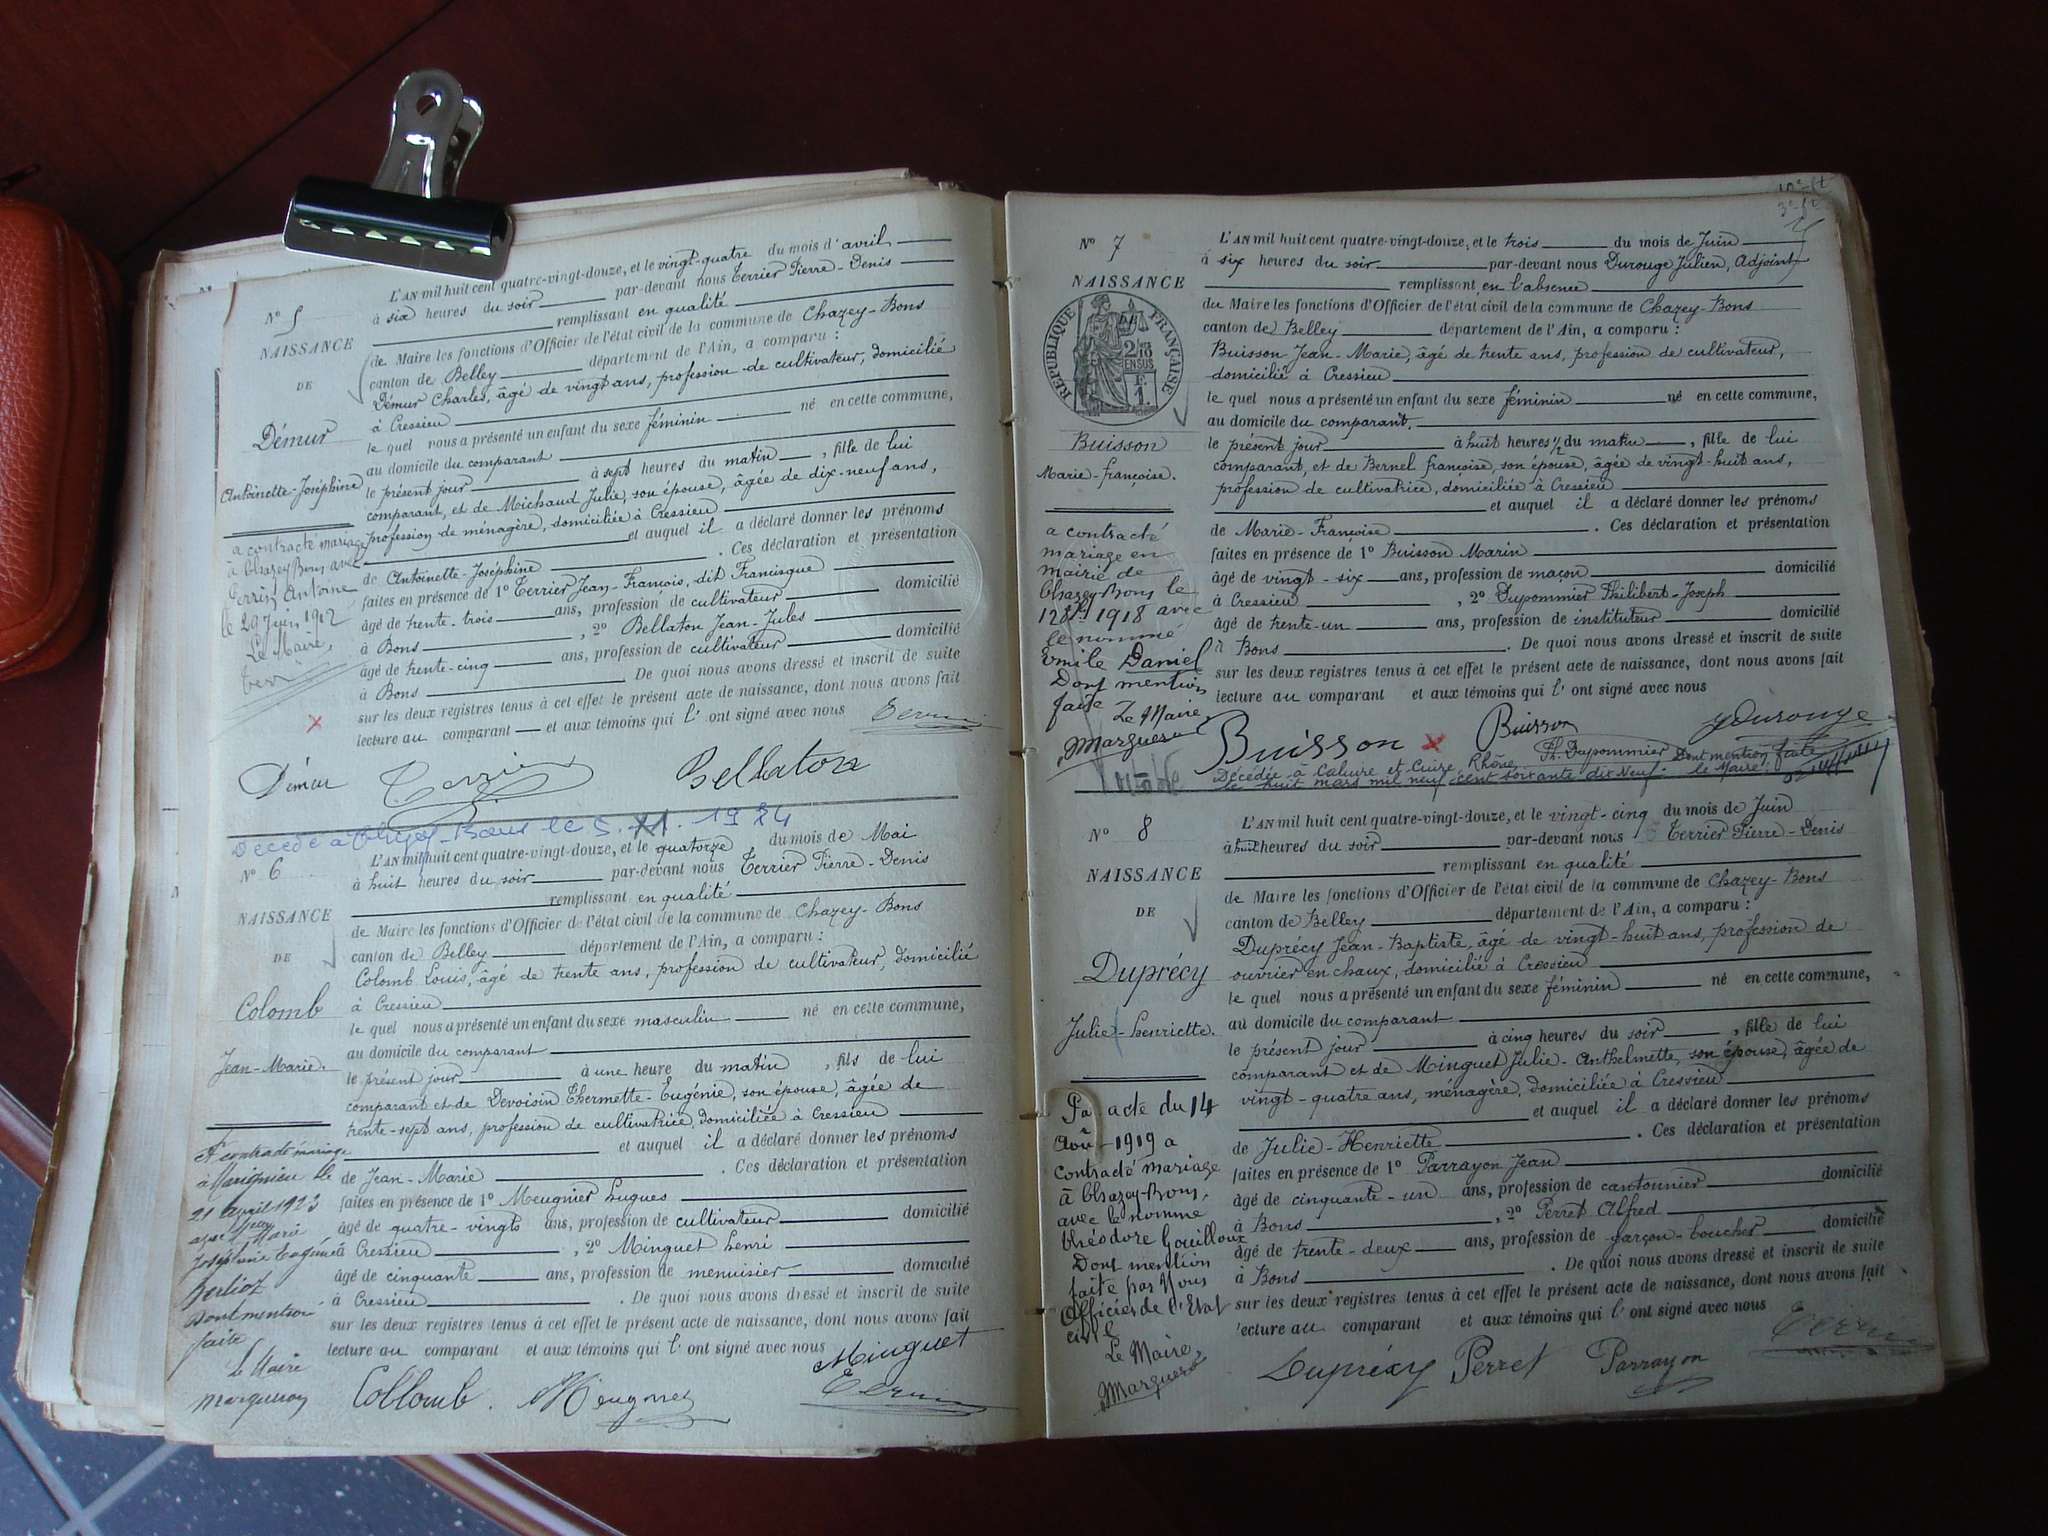 L'AN mil huit cent quatre-vingt-douze, et le vingt-quatre du mois d'avril
à six heures du soir par-devant nous Terrier Pierre-Denis
remplissant en qualité
de Maire les fonctions d'Officier de l'état civil de la commune de Chazey-Bons
canton de Belley département de l'Ain, a comparu :
Démur Charles, âgé de vingt ans, profession de cultivateur, domicilié
à Cressieu
le quel nous a présenté un enfant du sexe féminin né en cette commune,
au domicile du comparant
le présent jour à sept heures du matin, fille de lui
comparant, et de Michaud Julie, son épouse, âgée de dix-neuf ans,
profession de ménagère, domiciliée à Cressieu
et auquel il a déclaré donner les prénoms
de Antoinette-Joséphine . Ces déclaration et présentation
faites en présence de 1° Terrier Jean-François, dit Francisque
âgé de trente-trois ans, profession de cultivateur domicilié
à Bons , 2° Bellaton Jean-Jules
âgé de trente-cinq ans, profession de cultivateur domicilié
à Bons De quoi nous avons dressé et inscrit de suite
sur les deux registres tenus à cet effet le présent acte de naissance, dont nous avons fait
lecture au comparant et aux témoins qui l'ont signé avec nous
N° 5
NAISSANCE
DE
Démur
Antoinette-Joséphine
a contracté mariage
à Chazey-Bons avec
Perrin Antoine
le 29 Juin 1912
Le Maire,
Démur Terrier Bellaton
Décédé à Chazey-Bons le 5. 11. 1974
N° 6
NAISSANCE
DE
Colomb
Jean-Marie.
L'AN mil huit cent quatre-vingt-douze, et le quatorze du mois de Mai
à huit heures du soir par-devant nous Terrier Pierre-Denis
remplissant en qualité
de Maire les fonctions d'Officier de l'état civil de la commune de Chazey-Bons
canton de Belley département de l'Ain, a comparu :
Colomb Louis, âgé de trente ans, profession de cultivateur, domicilié
à Cressieu
le quel nous a présenté un enfant du sexe masculin né en cette commune,
au domicile du comparant
le présent jour à une heure du matin , fils de lui
comparant et de Devoisin Thermette-Eugénie, son épouse, âgée de
trente-sept ans, profession de cultivatrice, domiciliée à Cressieu
et auquel il a déclaré donner les prénoms
de Jean-Marie . Ces déclaration et présentation
faites en présence de 1° Meugnier Hugues
âgé de quatre-vingts ans, profession de cultivateur domicilié
à Cressieu , 2° Minguet Henri
âgé de cinquante ans, profession de menuisier domicilié
à Cressieu . De quoi nous avons dressé et inscrit de suite
sur les deux registres tenus à cet effet le présent acte de naissance, dont nous avons fait
lecture au comparant et aux témoins qui l'ont signé avec nous
A contracté mariage
à Marignieu le
21 avril 1923
avec Marie
Joséphine Eugénie
Berlioz
dont mention
faite
le Maire
Marguerou
Minguet
Collomb. Meugnier
N° 7
NAISSANCE
RÉPUBLIQUE FRANÇAISE
2/10 EN SUS
F. 1.
Buisson
Marie-Françoise.
L'AN mil huit cent quatre-vingt-douze, et le trois du mois de Juin
à six heures du soir par-devant nous Durouge Julien, Adjoint
remplissant en l'absence
du Maire les fonctions d'Officier de l'état civil de la commune de Chazey-Bons
canton de Belley département de l'Ain, a comparu :
Buisson Jean-Marie, âgé de trente ans, profession de cultivateur,
domicilié à Cressieu
le quel nous a présenté un enfant du sexe féminin né en cette commune,
au domicile du comparant.
le présent jour à huit heures 1/2 du matin, fille de lui
comparant, et de Bernel françoise, son épouse, âgée de vingt-huit ans,
profession de cultivatrice, domiciliée à Cressieu
et auquel il a déclaré donner les prénoms
de Marie-Françoise . Ces déclaration et présentation
faites en présence de 1° Buisson Marin
âgé de vingt-six ans, profession de maçon domicilié
à Cressieu , 2° Dupommier Philibert-Joseph
âgé de trente-un ans, profession de instituteur domicilié
à Bons . De quoi nous avons dressé et inscrit de suite
sur les deux registres tenus à cet effet le présent acte de naissance, dont nous avons fait
lecture au comparant et aux témoins qui l'ont signé avec nous
a contracté
mariage en
mairie de
Chazey-Bons le
1918 avec
le nommé
Emile Daniel
Dont mention
faite Le Maire,
Marguerou
Buisson Buisson JDurouge
Ph. Dupommier
Décédée à Caluire et Cuire, Rhône Dont mention faite
le huit mars mil neuf cent soixante dix neuf. le Maire.
N° 8
NAISSANCE
DE
Duprécy
Julie-Henriette.
L'AN mil huit cent quatre-vingt-douze, et le vingt-cinq du mois de Juin
à huit heures du soir par-devant nous Terrier Pierre-Denis
remplissant en qualité
de Maire les fonctions d'Officier de l'état civil de la commune de Chazey-Bons
canton de Belley département de l'Ain, a comparu :
Duprécy Jean-Baptiste, âgé de vingt-huit ans, profession de
ouvrier en chaux, domicilié à Cressieu
le quel nous a présenté un enfant du sexe féminin né en cette commune,
au domicile du comparant
le présent jour à cinq heures du soir , fille de lui
comparant et de Minguet Julie-Anthelmette, son épouse, âgée de
vingt-quatre ans, ménagère, domiciliée à Cressieu
et auquel il a déclaré donner les prénoms
de Julie-Henriette . Ces déclaration et présentation
faites en présence de 1° Parrayon Jean
âgé de cinquante-un ans, profession de cantonnier domicilié
à Bons , 2° Perret Alfred
âgé de trente-deux ans, profession de garçon-boucher domicilié
à Bons . De quoi nous avons dressé et inscrit de suite
sur les deux registres tenus à cet effet le présent acte de naissance, dont nous avons fait
lecture au comparant et aux témoins qui l'ont signé avec nous
Par acte du 14
Août 1919 a
contracté mariage
à Chazey-Bons,
avec le nommé
Théodore Gouilloux
Dont mention
faite par Nous
Officier de l'Etat
civil
Le Maire,
Marguerou
Duprécy Perret Parrayon